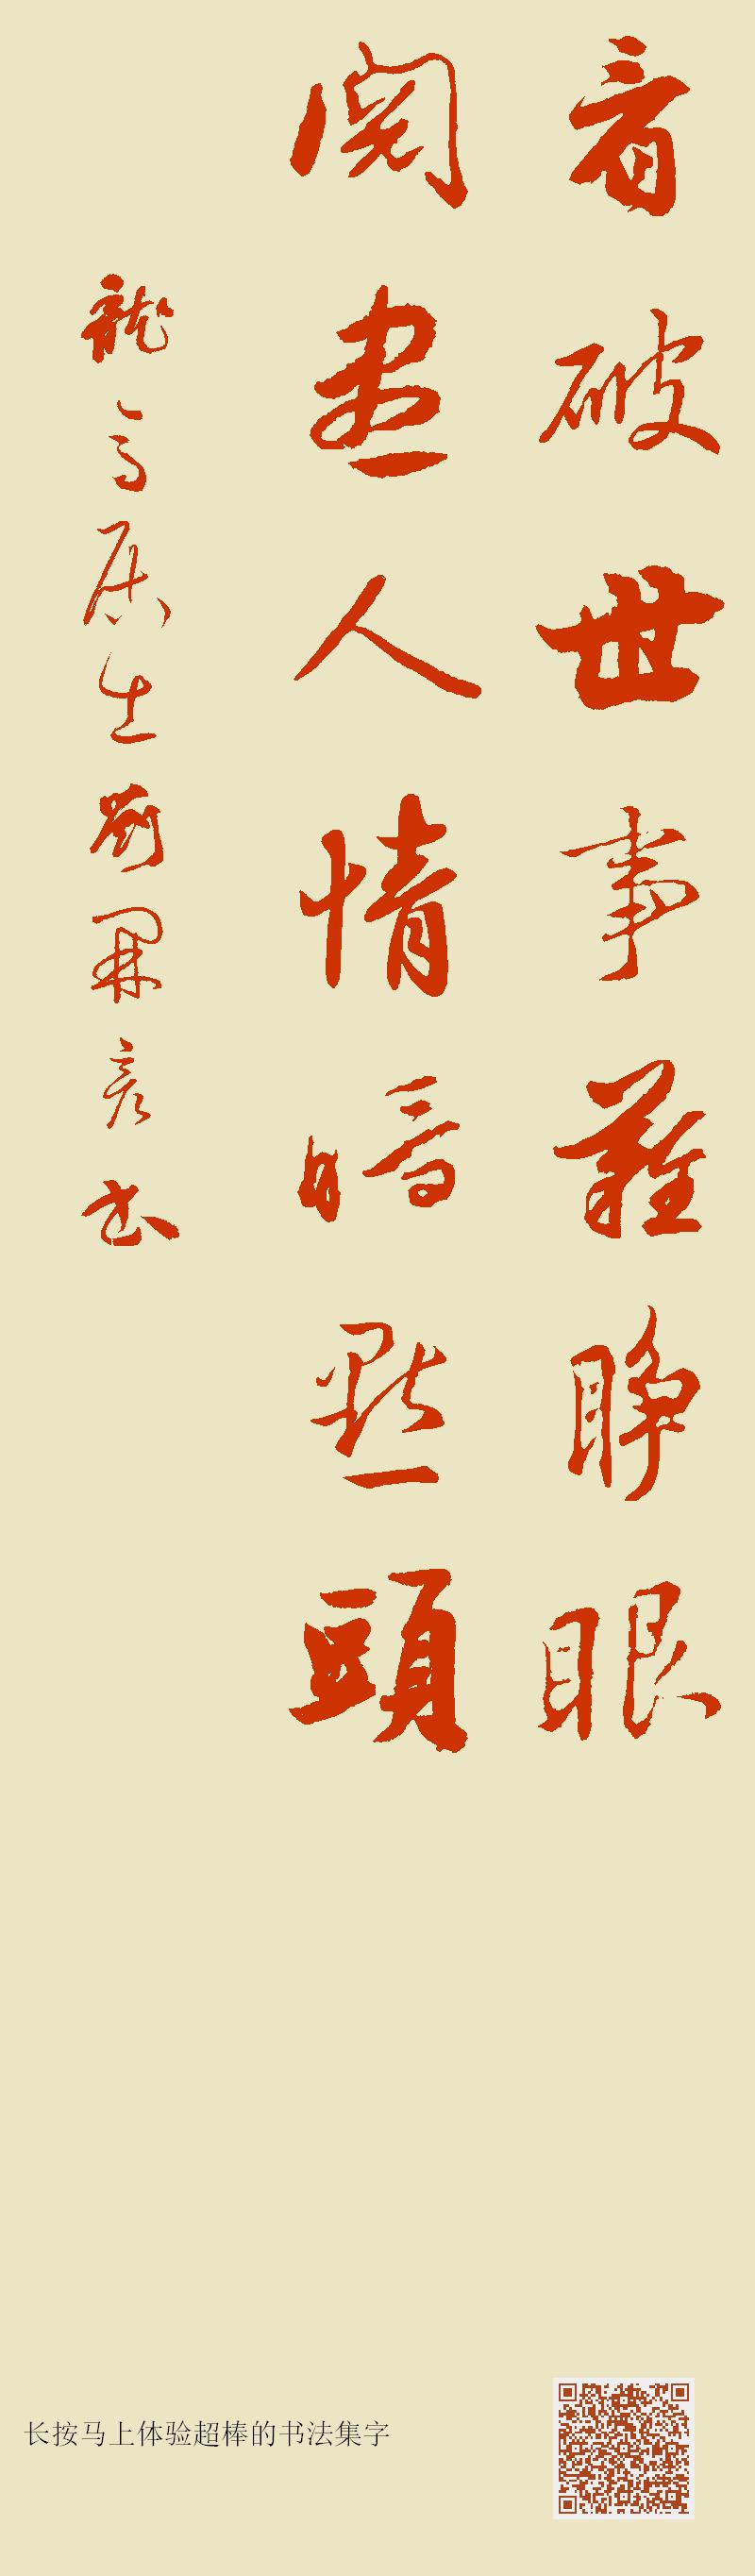 看破世事難睜眼
閱盡人情暗點頭
龍居生劉開彦書
长按马上体验超棒的书法集字